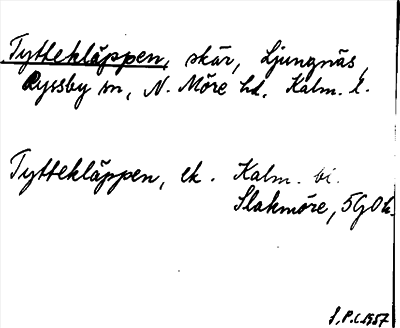 Tyttekläppen, skär, Ljungnäs,
Ryssby sn, N. Möre hd, Kalm. l.
Tyttekläppen, ek. Kalm. bi.
Slakmöre, 5G0h.